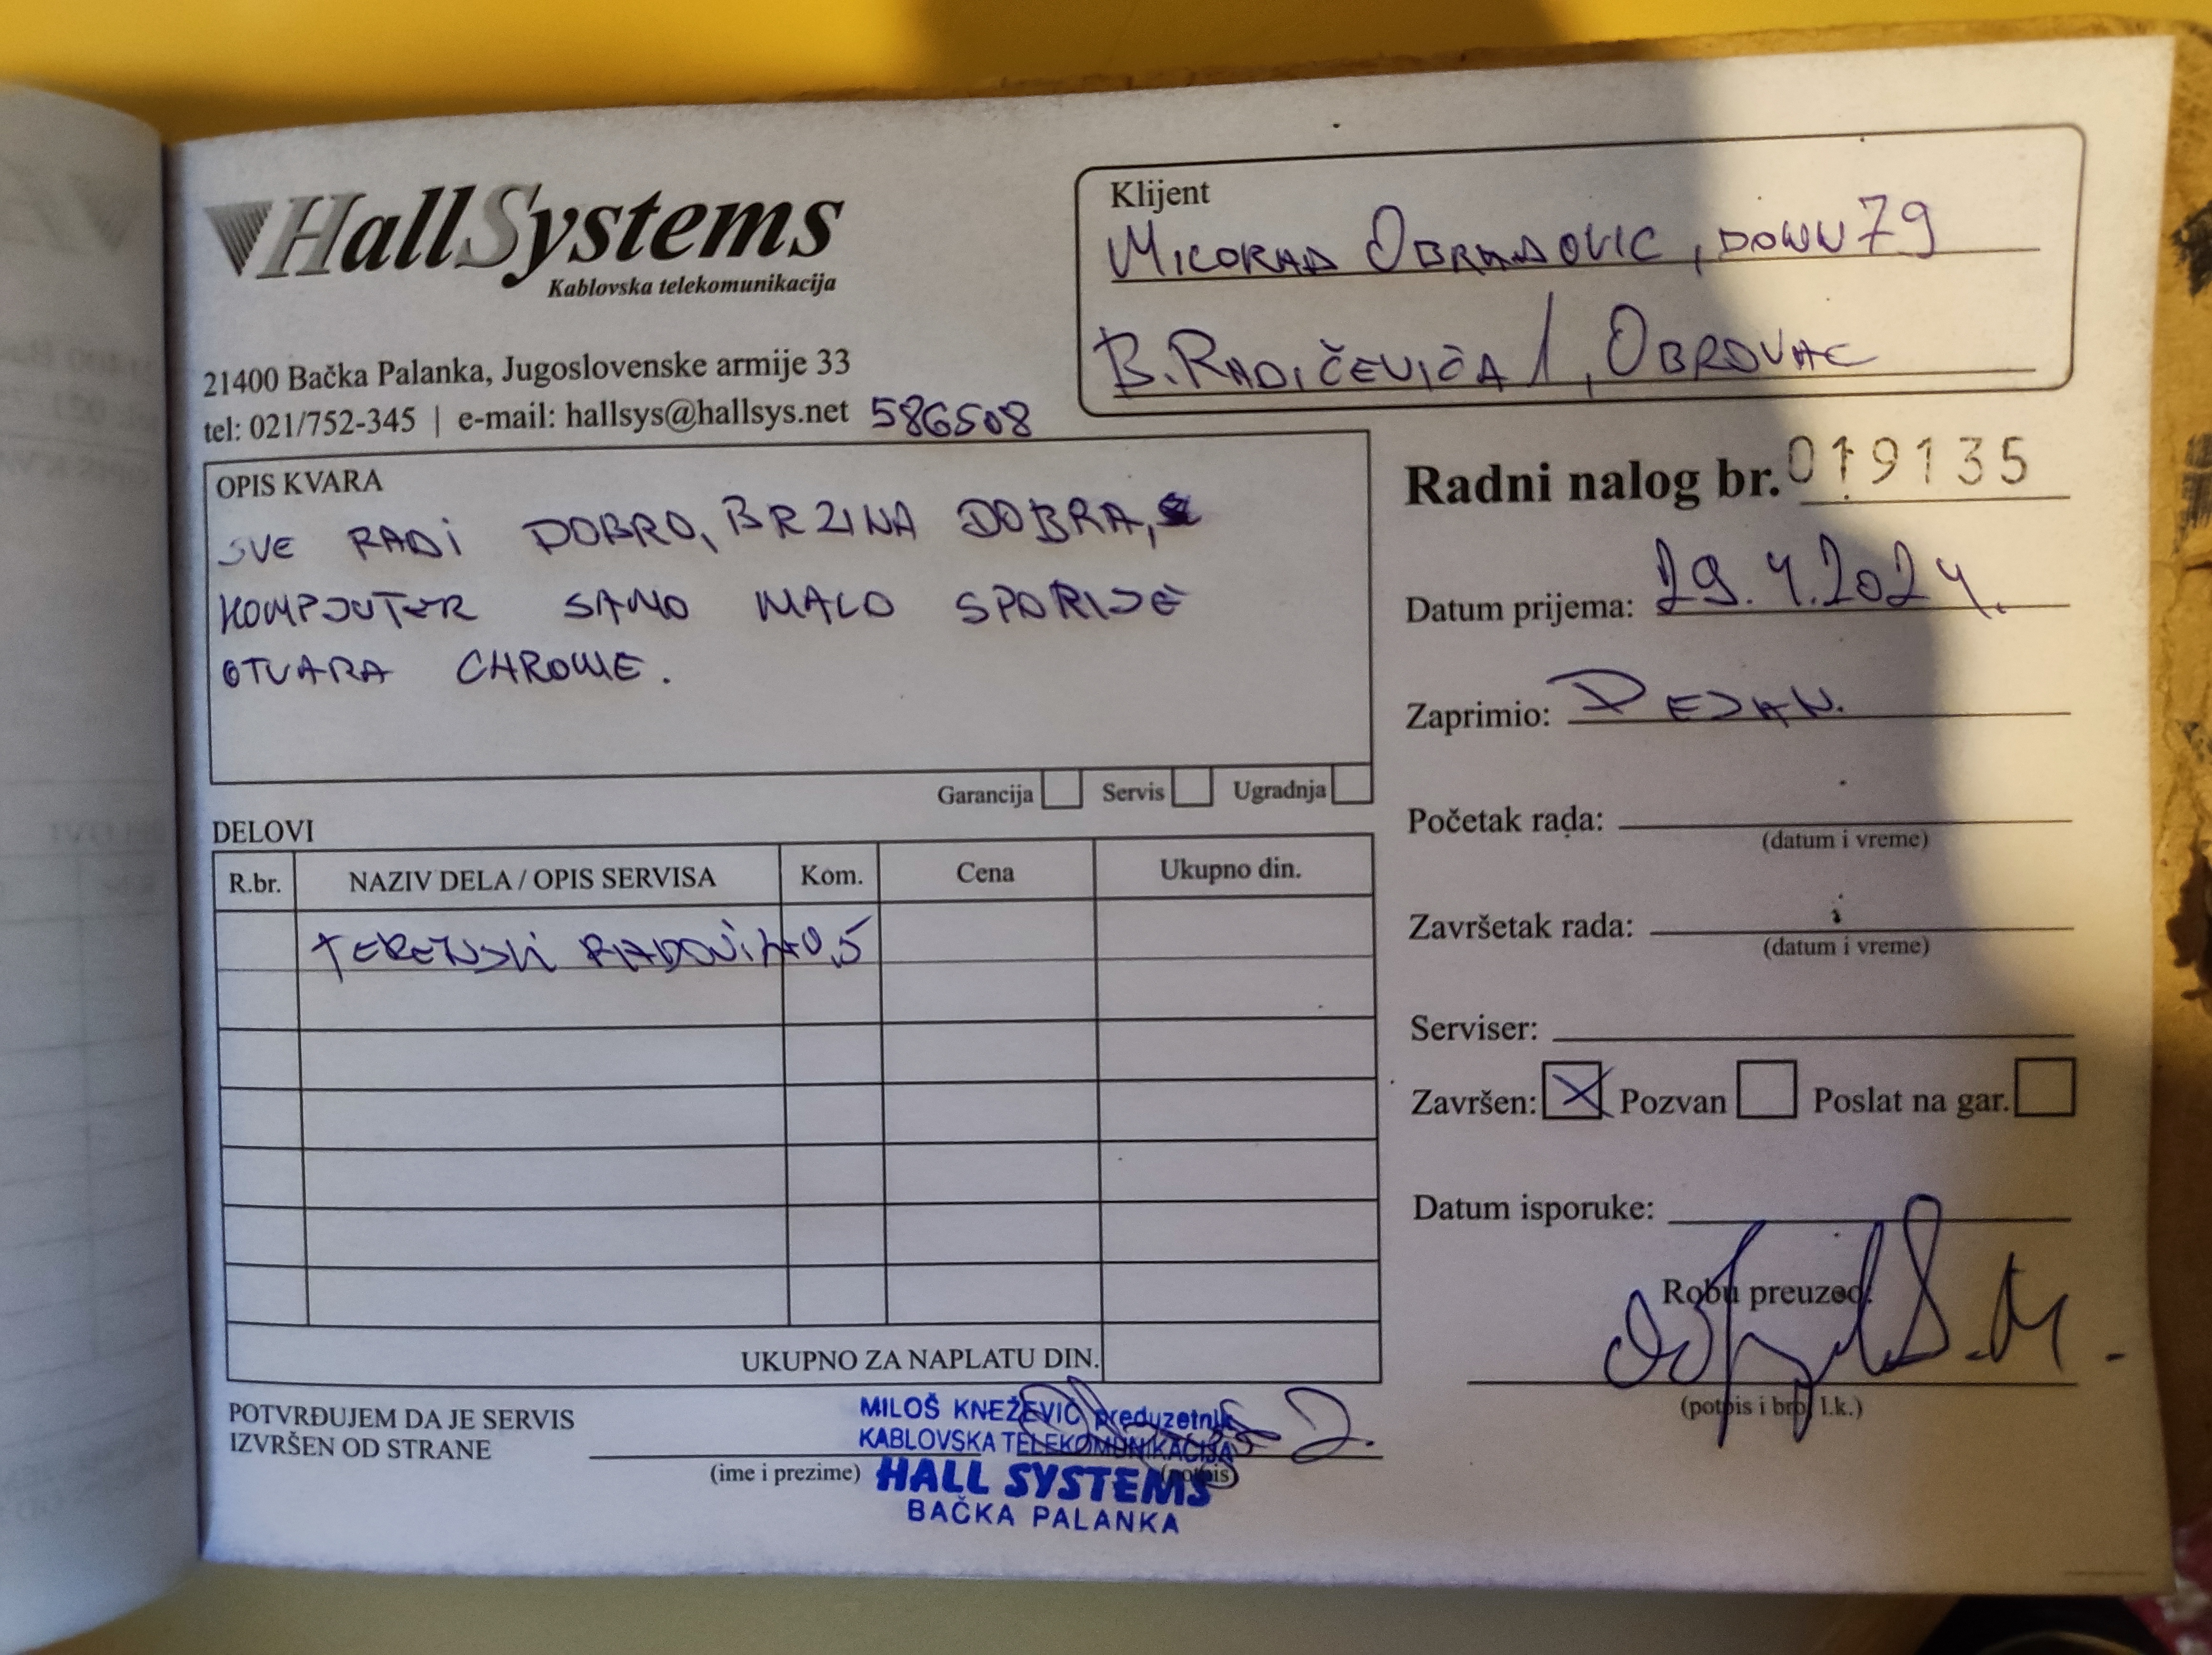 HallSystems
Kablovska telekomunikacija
21400 Bačka Palanka, Jugoslovenske armije 33
tel: 021/752-345 | e-mail: hallsys@hallsys.net 586508
Klijent
MILORAD OBRADOVIC, DOWN79
B. RADIČEVIČA 1, OBROVAC
OPIS KVARA
SVE RADI DOBRO, BRZINA DOBRA,
KOMPJUTER SAMO MALO SPORIJE
OTVARA CHROME.
Garancija Servis Ugradnja
Radni nalog br. 019135
Datum prijema: 29.4.2024.
Zaprimio: DEJAN.
Početak rada:
(datum i vreme)
Završetak rada:
(datum i vreme)
Serviser:
Završen: X Pozvan Poslat na gar.
Datum isporuke:
Robu preuzeo:
(potpis i broj l.k.)
DELOVI
R.br. NAZIV DELA / OPIS SERVISA Kom. Cena Ukupno din.
TERENSKI RADOVI 0,5
UKUPNO ZA NAPLATU DIN.
POTVRĐUJEM DA JE SERVIS
IZVRŠEN OD STRANE
(ime i prezime) (potpis)
MILOŠ KNEŽEVIĆ preduzetnik
KABLOVSKA TELEKOMUNIKACIJA
HALL SYSTEMS
BAČKA PALANKA